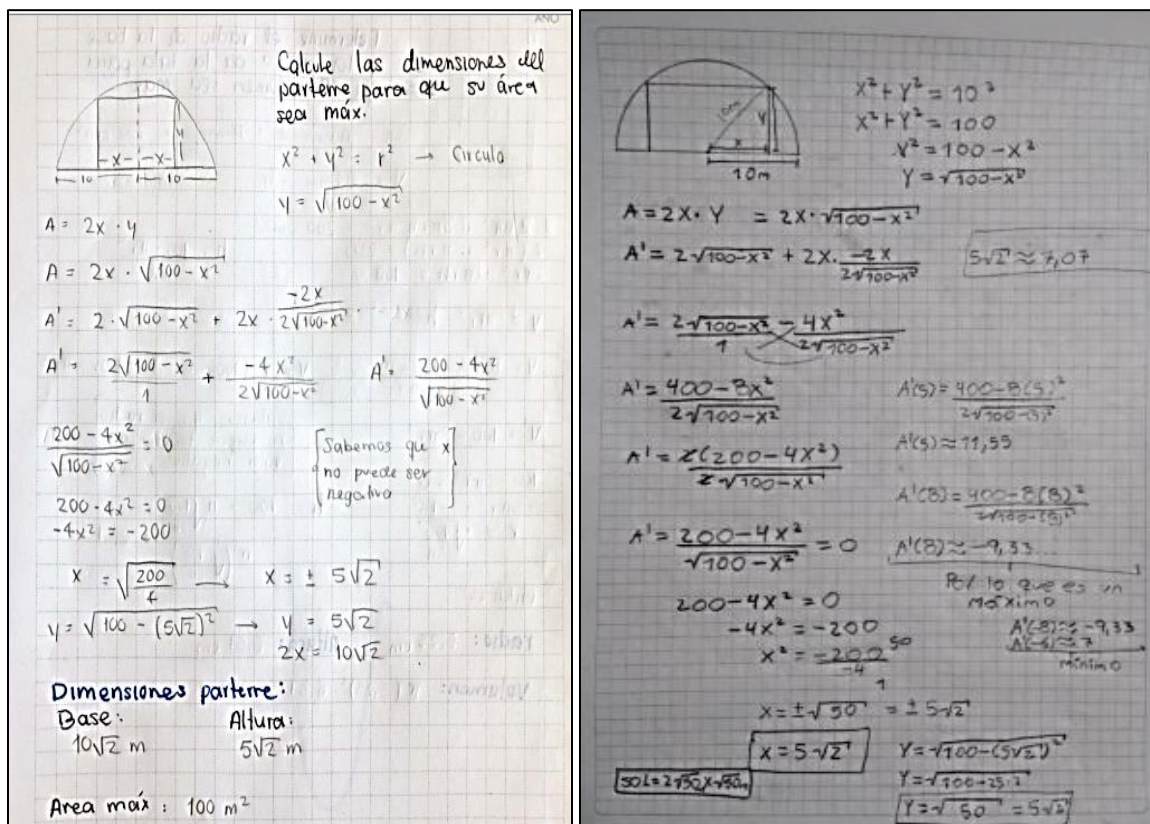 AÑO
Calcule las dimensiones del
parterre para que su área
sea máx.
-x- -x-
y
10 10
x² + y² = r² → Circulo
y = √(100 - x²)
A = 2x · y
A = 2x · √(100 - x²)
A' = 2 · √(100 - x²) + 2x · (-2x)/(2√(100-x²))
A' = (2√(100 - x²))/1 + (-4x²)/(2√(100-x²))
A' = (200 - 4x²)/√(100 - x²)
(200 - 4x²)/√(100-x²) = 0
[Sabemos que x
no puede ser
negativo]
200 - 4x² = 0
-4x² = -200
x = √(200/4) → x = ± 5√2
y = √(100 - (5√2)²) → y = 5√2
2x = 10√2
Dimensiones parterre:
Base: Altura:
10√2 m 5√2 m
Area máx : 100 m²
10m
y
x
10m
x² + y² = 10²
x² + y² = 100
y² = 100 - x²
y = √(100-x²)
A = 2x · y = 2x · √(100-x²)
A' = 2√(100-x²) + 2x · (-2x)/(2√(100-x²))
5√2 ≈ 7,07
A' = (2√(100-x²))/1 - (4x²)/(2√(100-x²))
A' = (400-8x²)/(2√(100-x²))
A'(5) = (400-8(5)²)/(2√(100-(5)²))
A'(5) ≈ 11,55
A' = (2(200-4x²))/(2√(100-x²))
A'(8) = (400-8(8)²)/(2√(100-(8)²))
A'(8) ≈ -9,33...
A' = (200-4x²)/√(100-x²) = 0
Por lo que es un
Máximo
200-4x² = 0
-4x² = -200
A'(-8) ≈ -9,33
mínimo
x² = (-200)/(-4) 50
1
x = ±√50 = ± 5√2
x = 5√2
y = √(100-(5√2)²)
SOL = 2√50 x √50
y = √(100-25·2)
y = √50 = 5√2